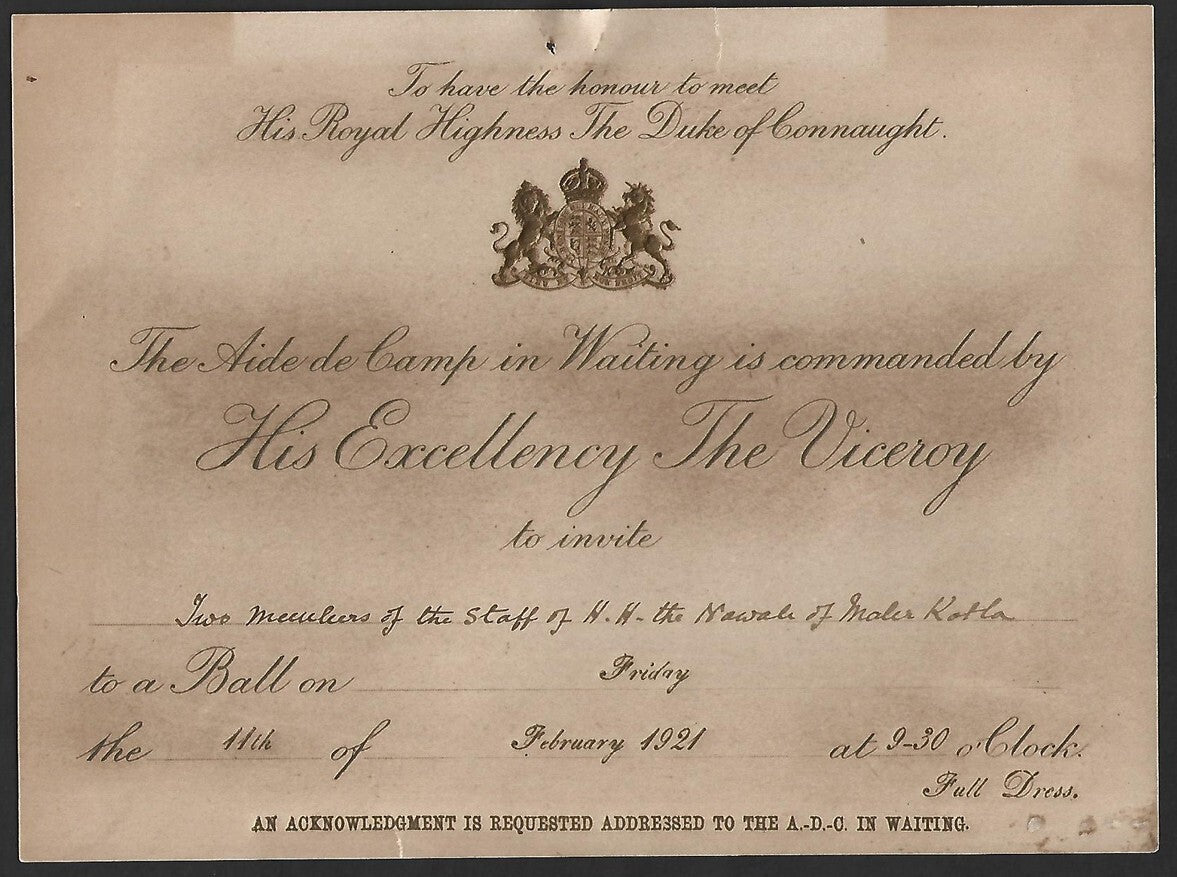 To have the honour to meet
His Royal Highness The Duke of Connaught.
The Aide de Camp in Waiting is commanded by
His Excellency The Viceroy
to invite
Two Members of the Staff of H. H. the Nawab of Maler Kotla
to a Ball on Friday
the 11th of February 1921 at 9-30 o'Clock.
Full Dress.
AN ACKNOWLEDGMENT IS REQUESTED ADDRESSED TO THE A.-D.-C. IN WAITING.